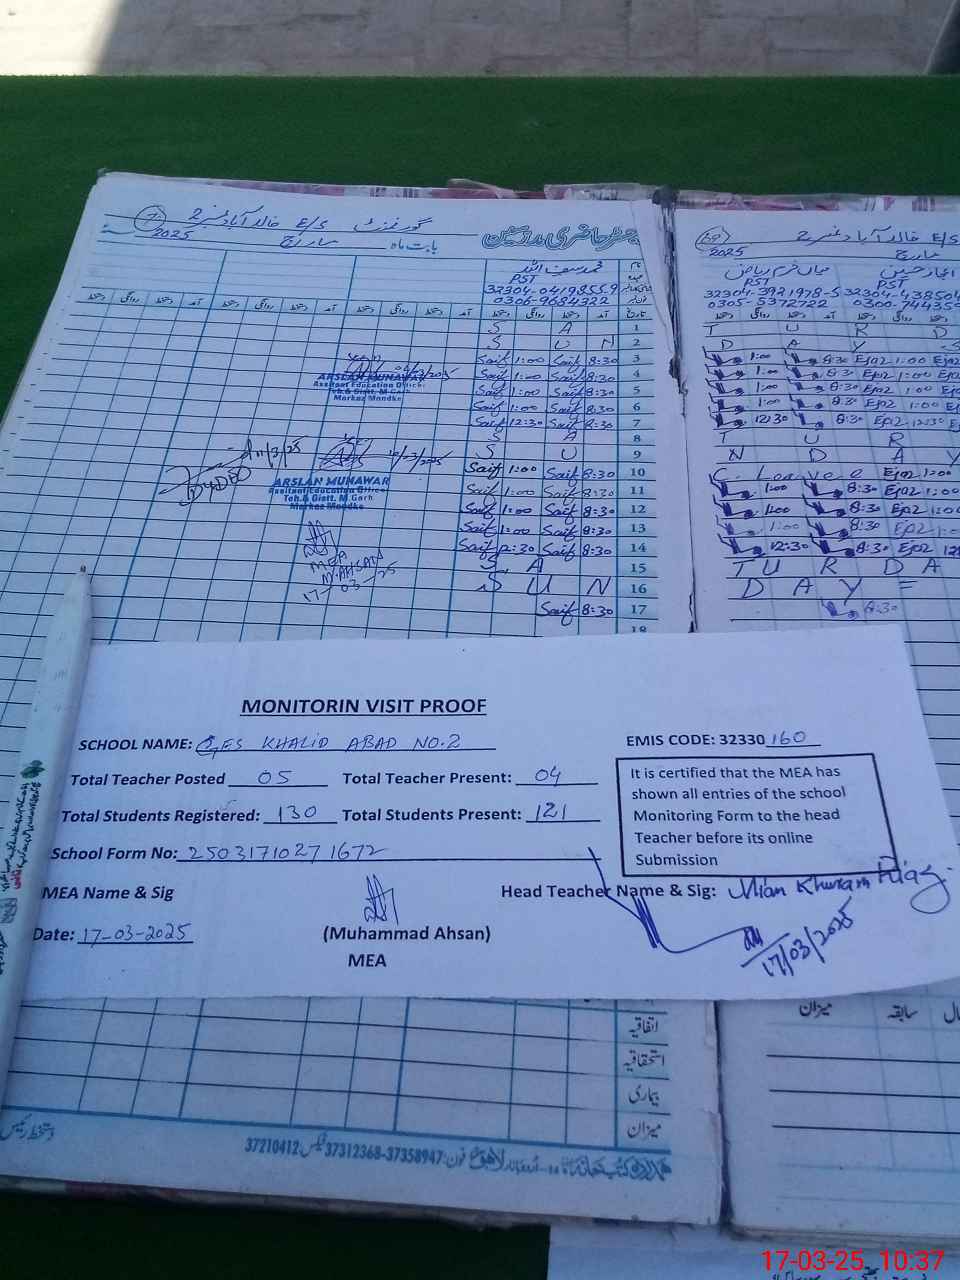 گورنمنٹ E/S خالد آبادنمبر 2
2025
مارچ
بابت ماہ
رجسٹر حاضری مدرسین
محمد سیف اللہ
PST
32304-0419855-9
0306-9684322
نام
تاریخ
دستخط روانگی دستخط آمد دستخط روانگی دستخط آمد دستخط روانگی دستخط آمد
S A 1
S U N 2
Saif 1:00 Saif 8:30 3
Saif 1:00 Saif 8:30 4
Saif 1:00 Saif 8:30 5
Saif 1:00 Saif 8:30 6
Saif 12:30 Saif 8:30 7
S A 8
S U 9
Saif 1:00 Saif 8:30 10
Saif 1:00 Saif 8:30 11
Saif 1:00 Saif 8:30 12
Saif 1:00 Saif 8:30 13
Saif 12:30 Saif 8:30 14
S A 15
S U N 16
Saif 8:30 17
18
ARSLAN MUNAWAR
Assitant Education Officer
Teh.& Distt. M.Garh
Markaz Mondka
11/3/25
DyDEO
10/03/2025
ARSLAN MUNAWAR
Assitant Education Officer
Teh.& Distt. M.Garh
Markaz Mondka
MEA
M.AHSAN
17-03-25
2025
مارچ
2 خالد آبادنمبر E/S
میاں خرم ریاض
PST
32304-3921978-5
0305-5372722
اعجاز حسین
PST
32304-438504
0300-74435
T U R D
D A Y S
1:00 8:30 Ejaz 1:00 Ejaz
1:00 8:30 Ejaz 1:00 Ejaz
1:00 8:30 Ejaz 1:00 Ejaz
1:00 8:30 Ejaz 1:00 Ejaz
12:30 8:30 Ejaz 12:30 Ejaz
T U R
N D A Y
C. Leave Ejaz 1:00
1:00 8:30 Ejaz 1:00
1:00 8:30 Ejaz 1:00
1:00 8:30 Ejaz 1:00
12:30 8:30 Ejaz 12:30
T U R D A
D A Y =
8:30
MONITORIN VISIT PROOF
SCHOOL NAME: GES KHALID ABAD NO.2 EMIS CODE: 32330 160
Total Teacher Posted 05 Total Teacher Present: 04
Total Students Registered: 130 Total Students Present: 121
School Form No: 25031710271672
It is certified that the MEA has
shown all entries of the school
Monitoring Form to the head
Teacher before its online
Submission
MEA Name & Sig Head Teacher Name & Sig: Mian Khuram Riaz
Date: 17-03-2025 (Muhammad Ahsan)
MEA
17/03/2025
اتفاقیہ
استحقاقیہ
بیماری
میزان
میزان سابقہ
37210412 :فیکس 37312368-37358947 :فون
17-03-25 10:37